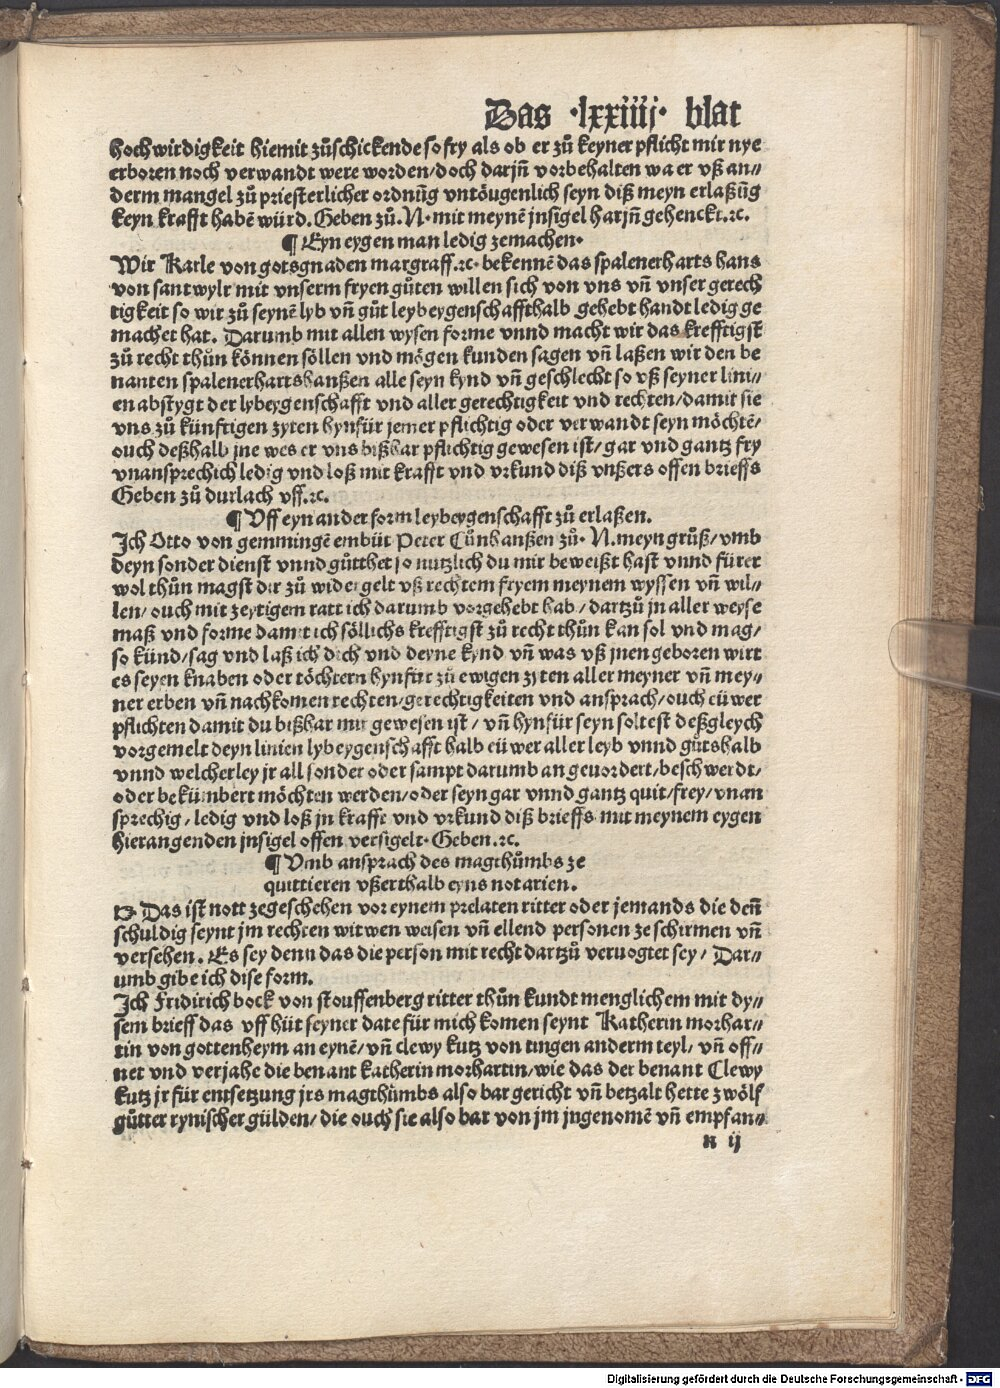 Das ·lxxiiij· blat
hochwirdigkeit hiemit zůschickende so fry als ob er zů keyner pflicht mir nye
erboren noch verwandt were worden/doch darjn̄ vorbehalten wa er vß an⸗
derm mangel zů priesterlicher ordnūg vntöugenlich seyn diß meyn erlaßūg
keyn krafft habē würd. Geben zů. N. mit meynē jnsigel harjn̄ gehenckt.ꝛc.
¶ Eyn eygen man ledig zemachen.
Wir Karle von gotsgnaden margraff.ꝛc. bekennē das spalenerharts hans
von sant wylr mit vnserm fryen gůten willen sich von vns vn̄ vnser gerech
tigkeit so wir zů seynē lyb vn̄ gůt leybeygenschaffthalb gehebt handt ledig ge
machet hat. Darumb mit allen wysen forme vnnd macht wir das krefftigst
zů recht thůn können söllen vnd mögen kunden sagen vn̄ laßen wir den be
nanten spalenerhartshanßen alle seyn kynd vn̄ geschlecht so vß seyner lini⸗
en abstygt der lybeygenschafft vnd aller gerechtigkeit vnd rechten/damit sie
vns zů künfftigen zyten hynfür jemer pflichtig oder verwandt seyn möchtē/
ouch deßhalb jne wes er vns bißhar pflichtig gewesen ist/ gar vnd gantz fry
vnansprechich ledig vnd loß mit krafft vnd vrkund diß vnßers offen brieffs
Geben zů durlach vff.ꝛc.
¶ Vff eyn ander form leybeygenschafft zů erlaßen.
Ich Otto von gemmingē embüt Peter Cůnhanßen zů. N. meyn grůß/vmb
deyn sonder dienst vnnd gůtthet so nutzlich du mir beweißt hast vnnd fürer
wol thůn magst dir zů widergelt vß rechtem fryem meynem wyssen vn̄ wil⸗
len/ouch mit zeytigem ratt ich darumb vorgehebt hab/dartzů jn aller weyse
maß vnd forme damit ich söllichs krefftigst zů recht thůn kan sol vnd mag/
so künd/sag vnd laß ich dich vnd deyne kynd vn̄ was vß jnen geboren wirt
es seyen knaben oder töchtern hynfür zů ewigen zyten aller meyner vn̄ mey⸗
ner erben vn̄ nachkomen rechten/gerechtigkeiten vnd ansprach/ouch eüwer
pflichten damit du bißhar mir gewesen ist/ vn̄ hynfür seyn soltest deßgleych
vorgemelt deyn linien lybeygenschafft halb eüwer aller leyb vnnd gůtshalb
vnnd welcherley jr all sonder oder sampt darumb angevordert/beschwerdt/
oder bekümbert möchten werden/oder seyn gar vnnd gantz quit/frey/vnan
sprechig/ledig vnd loß jn krafft vnd vrkund diß brieffs mit meynem eygen
hierangenden jnsigel offen versigelt. Geben.ꝛc.
¶ Vmb ansprach des magthůmbs ze
quittieren vßerthalb eyns notarien.
Das ist nott zegeschehen vor eynem prelaten ritter oder jemands die den̄
schuldig seynt jm rechten witwen weisen vn̄ ellend personen ze schirmen vn̄
versehen. Es sey denn das die person mit recht dartzů veruogtet sey/ Dar⸗
umb gibe ich dise form.
Ich Fridirich bock von stouffenberg ritter thůn kundt menglichem mit dy⸗
sem brieff das vff hüt seyner date für mich komen seynt Katherin morhar⸗
tin von gottenheym an eynē/vn̄ clewy kutz von tingen anderm teyl/ vn̄ off⸗
net vnd verjahe die benant katherin morhartin/wie das der benant Clewy
kutz jr für entsetzung jrs magthümbs also bar gericht vn̄ betzalt hette zwölf
gůtter rynischer gülden/die ouch sie also bar von jm jngenomē vn̄ empfan⸗
n ij
Digitalisierung gefördert durch die Deutsche Forschungsgemeinschaft - DFG